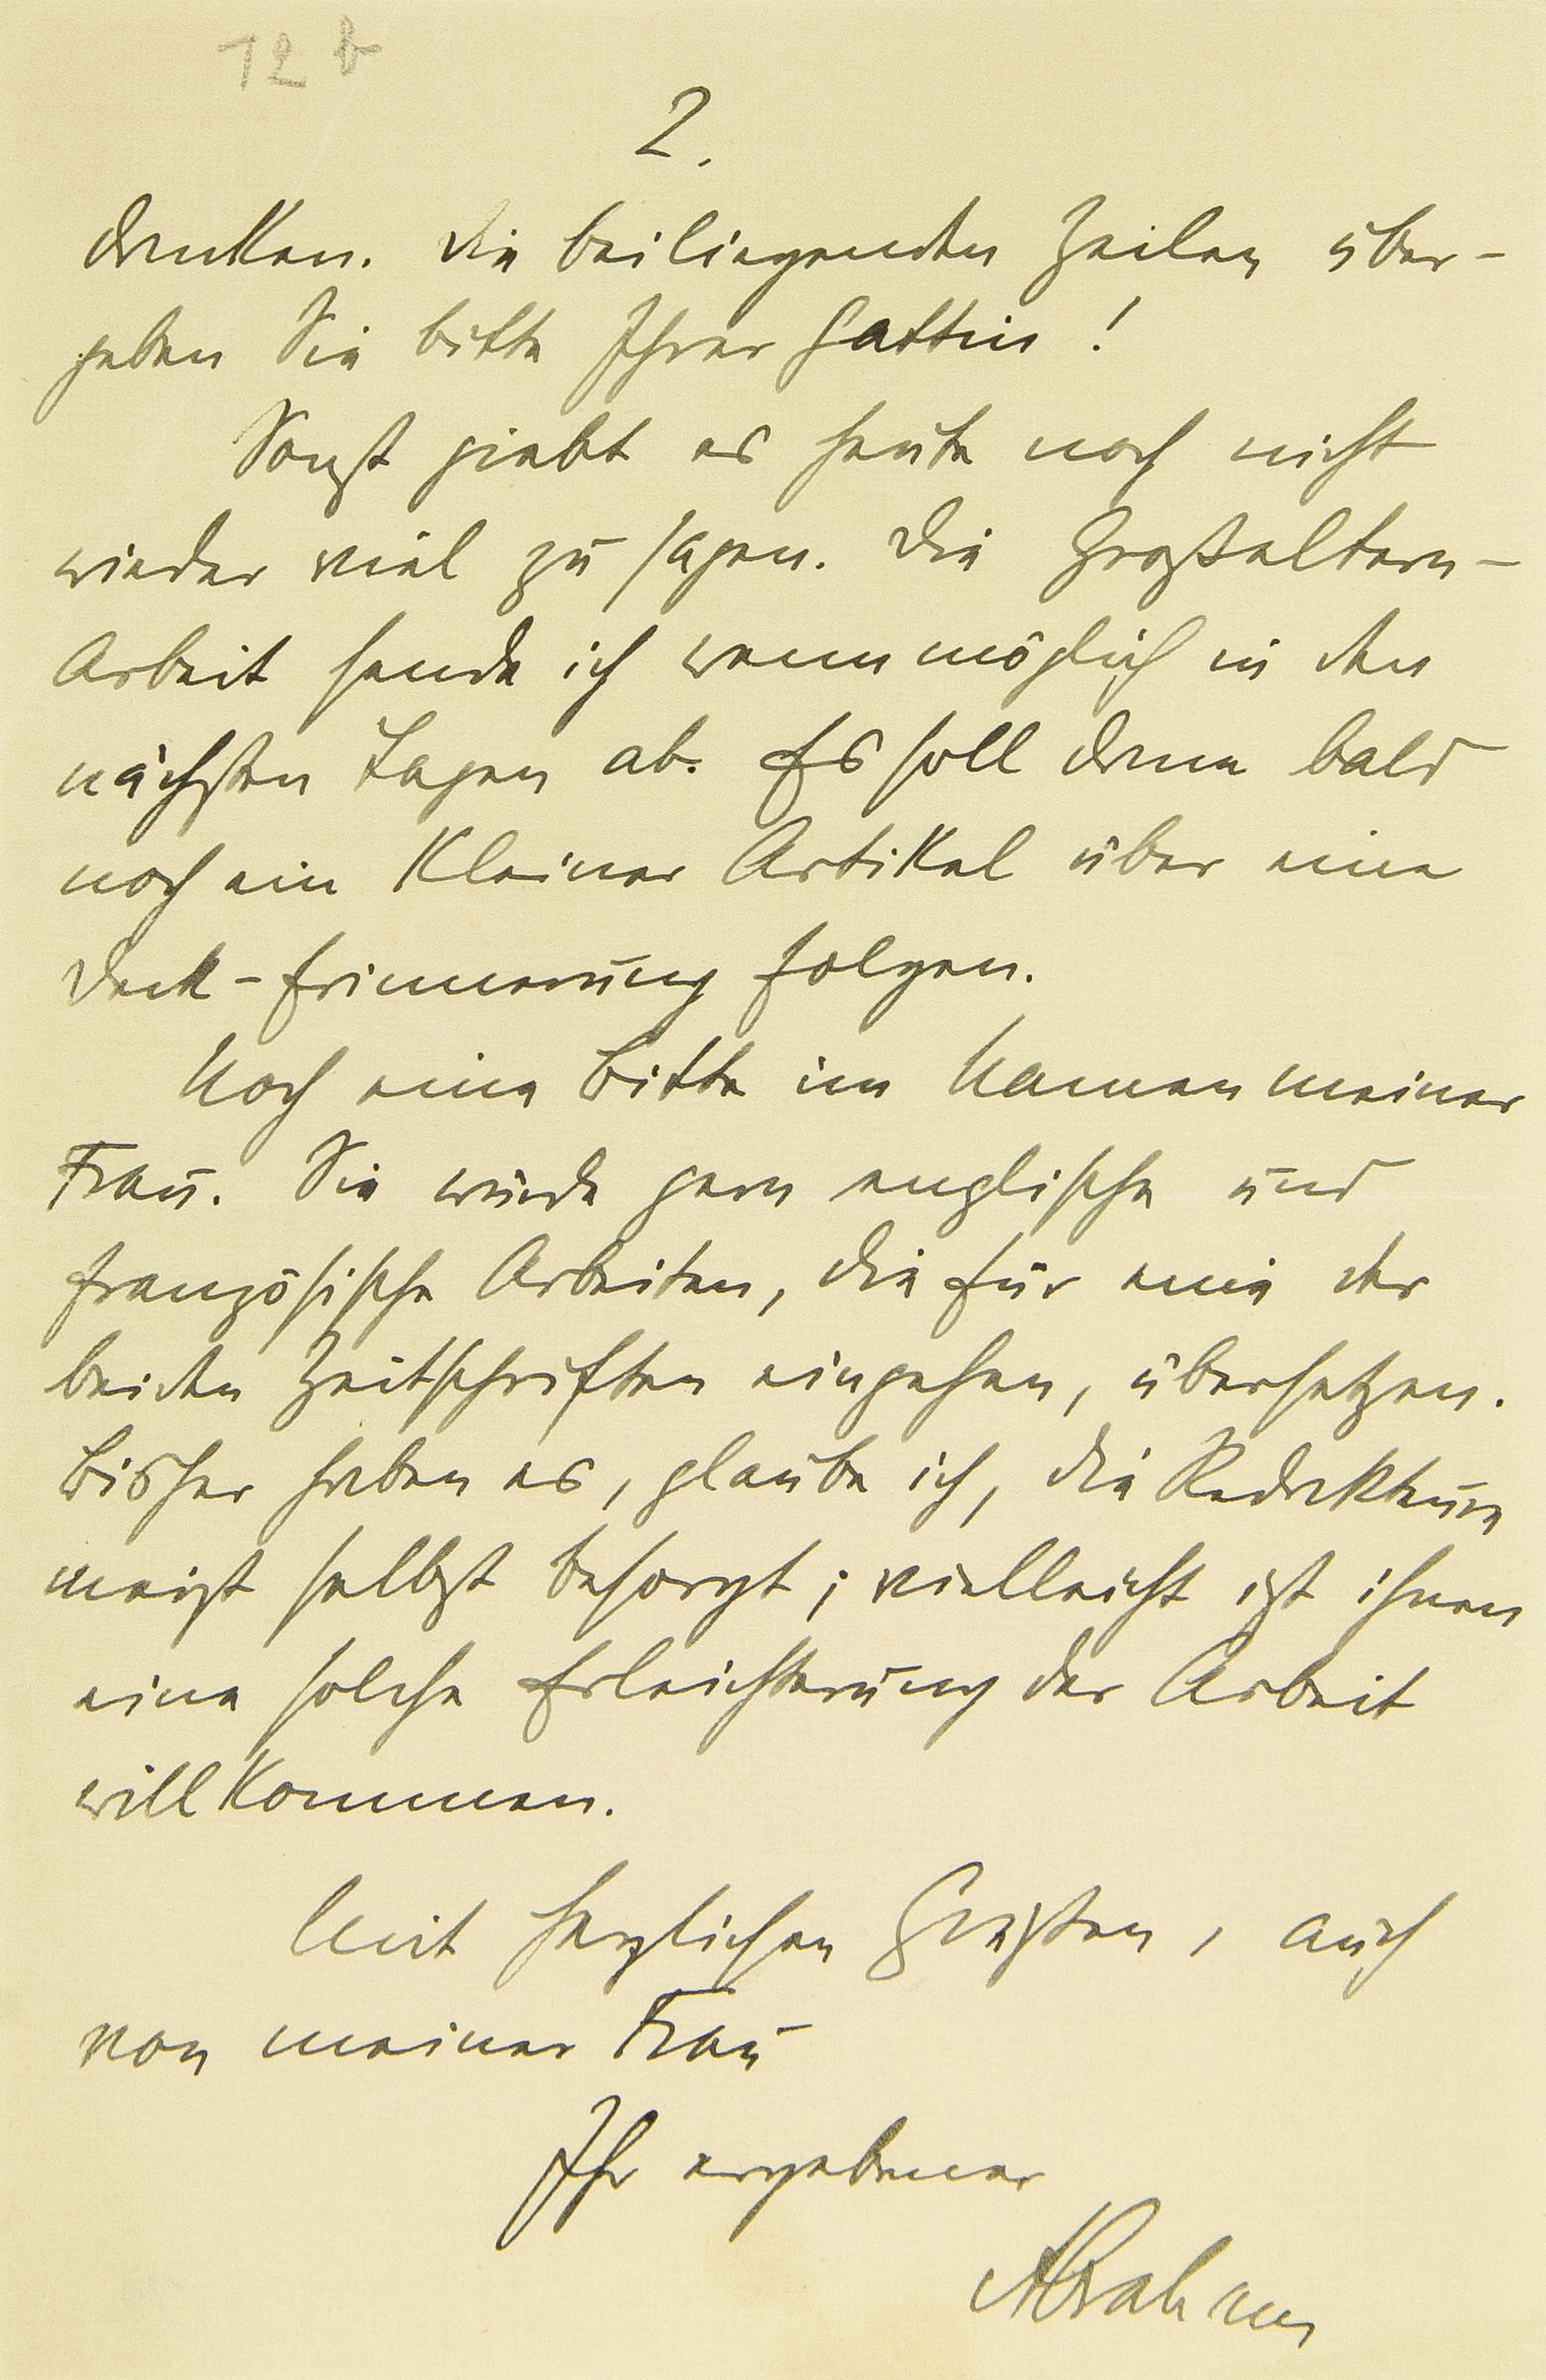 12b
2.
drucken. Die beiliegenden Zeilen über-
geben Sie bitte Ihrer Gattin!
Sonst giebt es heute noch nicht
wieder viel zu sagen. Die Großeltern-
Arbeit sende ich wenn möglich in den
nächsten Tagen ab. Es soll dann bald
noch ein kleiner Artikel über eine
Deck-Erinnerung folgen.
Noch eine Bitte im Namen meiner
Frau. Sie würde gern englische und
französische Arbeiten, die für eine der
beiden Zeitschriften eingehen, übersetzen.
Bisher haben es, glaube ich, die Redakteure
meist selbst besorgt; vielleicht ist ihnen
eine solche Erleichterung der Arbeit
willkommen.
Mit herzlichen Grüßen, auch
von meiner Frau
Ihr ergebener
Abraham